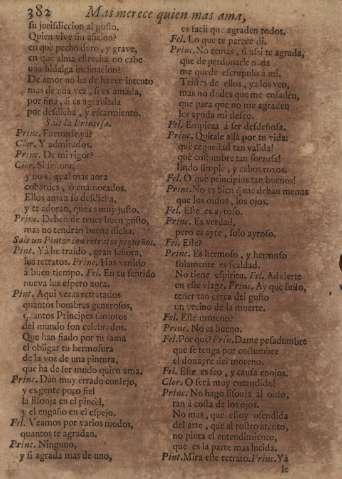 382
Mas merece quien mas ama,
su jurisdiccion al gusto.
Quien vive sin aficion?
en què pecho duro, y grave,
en què alma estrecha no cabe
una hidalga inclinacion?
De amor no ha de hacer intento
mas de una vez, si es amada,
por fina, si es agraviada
por desdicha, y escarmiento.
Sale la Princesa.
Princ. Fueronse yà?
Clor. Y admirados.
Princ. De mi rigor?
Clor. Si señora,
y no sè qual mas aora
cobardes, ò enamorados.
Ellos aman su desdicha,
y te adoran,
Princ. Deben de tener buen gusto,
mas no tendràn buena dicha.
Sale un Pintor con retratos pequeños.
Pint. Yà he traido, gran señora,
los retratos. Princ. Has venido
à buen tiempo. Fel. En tu sentido
nueva luz espero aora.
Pint. Aqui veràs retratados
quantos hombres generosos,
quantos Principes famosos
del mundo son celebrados.
Que han fiado por tu fama
el obligar tu hermosura
de la voz de una pintura,
que ha de ser mudo quien ama.
Princ. Dàn muy errado consejo,
y es gente poco fiel
la lisonja en el pincel,
y el engaño en el espejo.
Fel. Veamos por varios modos,
quantos te agradan.
Princ. Ninguno,
y si agrada mas de uno,
es facil que agraden todos.
Fel. Lo que te parece di.
Princ. No temas, si assi te agrada,
que de perdonarle nada
me quede escrupulo à mi.
Tristes de ellos, y à los ven,
mas no dudes que me enfaden,
que para que no me agraden
les ayuda mi desdèn.
Fel. Empieza à ser desdeñosa.
Princ. Quitale allà por tu vida:
què ceguedad tan valida!
què costumbre tan forzosa!
lindo simple, y cabos roxos.
Fel. O què principios tan buenos!
Princ. No es bien que deban menos
que los oidos, los ojos.
Fel. Este es ayroso.
Princ. Es verdad,
pero es ayre, solo ayroso.
Fel. Este?
Princ. Es hermoso, y hermoso
solamente es fealdad.
No tiene espiritu. Fel. Advierte
en esse viage. Princ. Ay què susto,
tener tan cerca del gusto
un vecino de la muerte.
Fel. Este moreno?
Princ. No es bueno.
Fel. Por què? Prin. Dame pesadumbre
que se tenga por costumbre
el donayre del moreno.
Fel. Este es feo, y causa enojos.
Clor. O serà muy entendida!
Princ. No hago lisonja al oido,
tan à costa de los ojos.
No mas, que estoy ofendida
del arte, que al rostro atento,
no pinta el entendimiento,
que es la parte mas lucida.
Pint. Mira este retrato. Princ. Yà
le